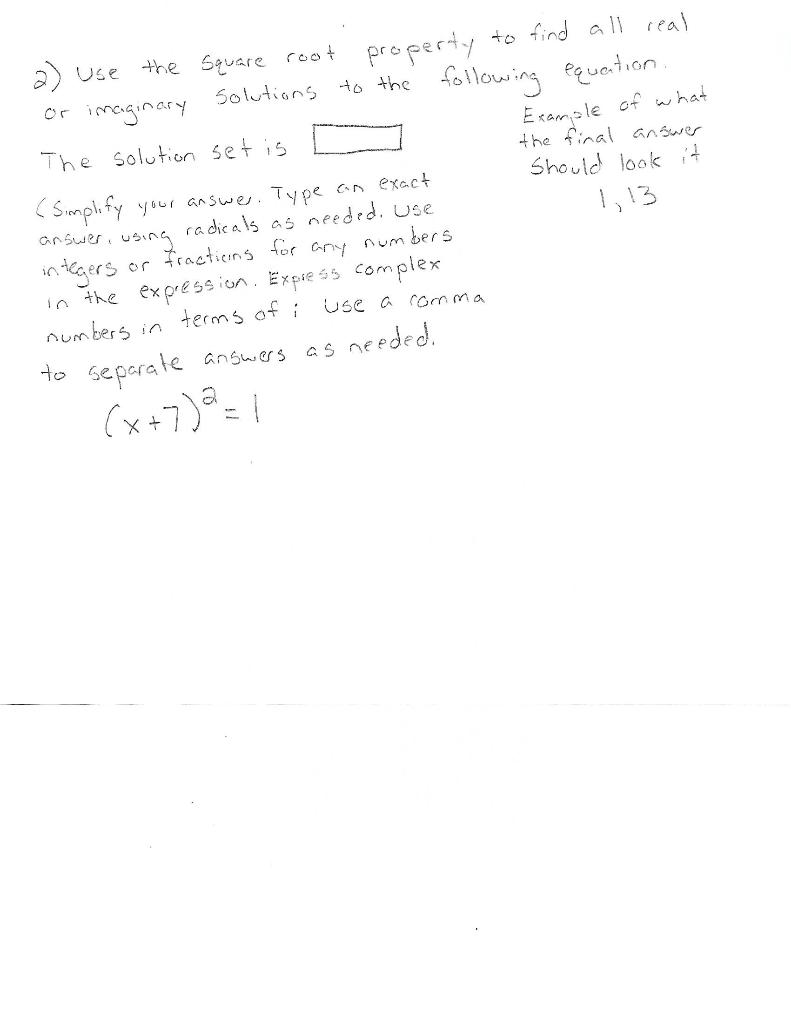 2) Use the Square root property to find all real
or imaginary Solutions to the following equation.
The solution set is
(Simplify your answer. Type an exact
answer, using radicals as needed. Use
integers or fractions for any numbers
in the expression. Express complex
numbers in terms of i Use a comma
to separate answers as needed.
(x+7)² = 1
Example of what
the final answer
Should look it
1, 13